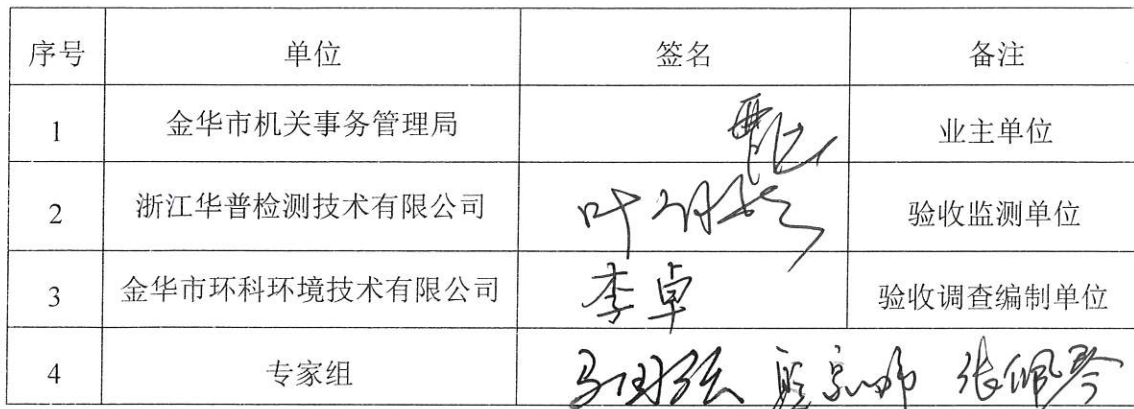 序号 单位 签名 备注
1 金华市机关事务管理局 业主单位
2 浙江华普检测技术有限公司 叶 验收监测单位
3 金华市环科环境技术有限公司 李卓 验收调查编制单位
4 专家组 张佩琴